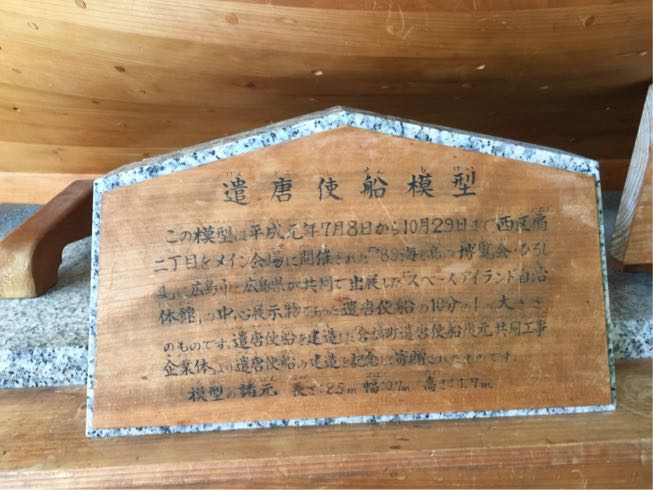 遣唐使船模型
この模型は平成元年7月8日から10月29日まで西区扇
二丁目をメイン会場に開催された「'89海と島の博覧会・ひろし
ま」に広島市と広島県が共同で出展した「スペースアイランド自治
体館」の中心展示物であった遣唐使船の10分の1の大きさ
のものです。遣唐使船を建造した「倉橋町遣唐使船復元共同工事
企業体」より遣唐使船の建造を記念して寄贈されたものです。
模型の諸元 長さ:2.5m 幅:0.7m 高さ:1.7m